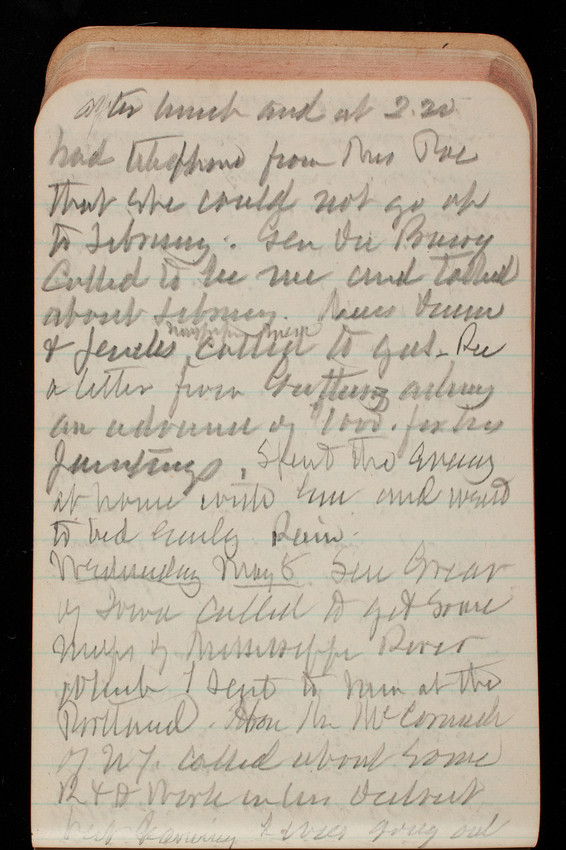 after lunch and at 2.20
had telephone from Mrs Roe
that she could not go up
to February. Gen Van
Called to see me and talked
about February.
newspaper men
& called to get. Rec
a letter from asking
an advance of 1000. for his
paintings. Spent the evening
at home with Em and went
to bed early Rain.
Wednesday May 8 Sen Gear
of Iowa called to get some
maps of Mississippi River
which I sent to him at the
Portland. Hon Mr McCormick
of N.Y. called about some
R & H Work in his District
was going out